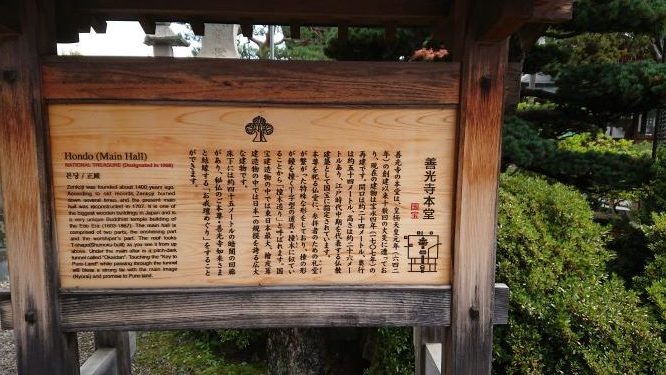 善光寺本堂
国宝
善光寺の本堂は、皇極天皇元年（六四二
年）の創建以来十数回の火災に遭ってお
り、現在の建物は宝永四年（一七〇七年）の
再建です。間口は約二十四メートル、奥行
は約五十四メートル、高さは約二十六メー
トルあり、江戸時代中期を代表する仏教
建築として国宝に指定されています。
床下には約四十五メートルの暗闇の回廊
があり、秘仏のご本尊・善光寺如来さま
と結縁する「お戒壇めぐり」をすること
ができます。
Hondo (Main Hall)
NATIONAL TREASURE (Designated in 1953)
본당 / 正殿
Zenkoji was founded about 1400 years ago.
According to old records, Zenkoji burned
down several times and the present main
hall was reconstructed in 1707. It is one of
the biggest wooden buildings in Japan and is
a very unique Buddhist temple building of
the Edo Era (1603-1867). The main hall is
comprised of two parts, the enshrining part
and the worshiper's part. The roof looks
T-shaped(Shumoku-built) as you see it from up
above. Under the main altar is a pitch-dark
tunnel called "Okaidan". Touching the "Key to
Pure-Land" while passing through the tunnel
will bless a strong tie with the main image
(Nyorai) and promise to Pure-land.